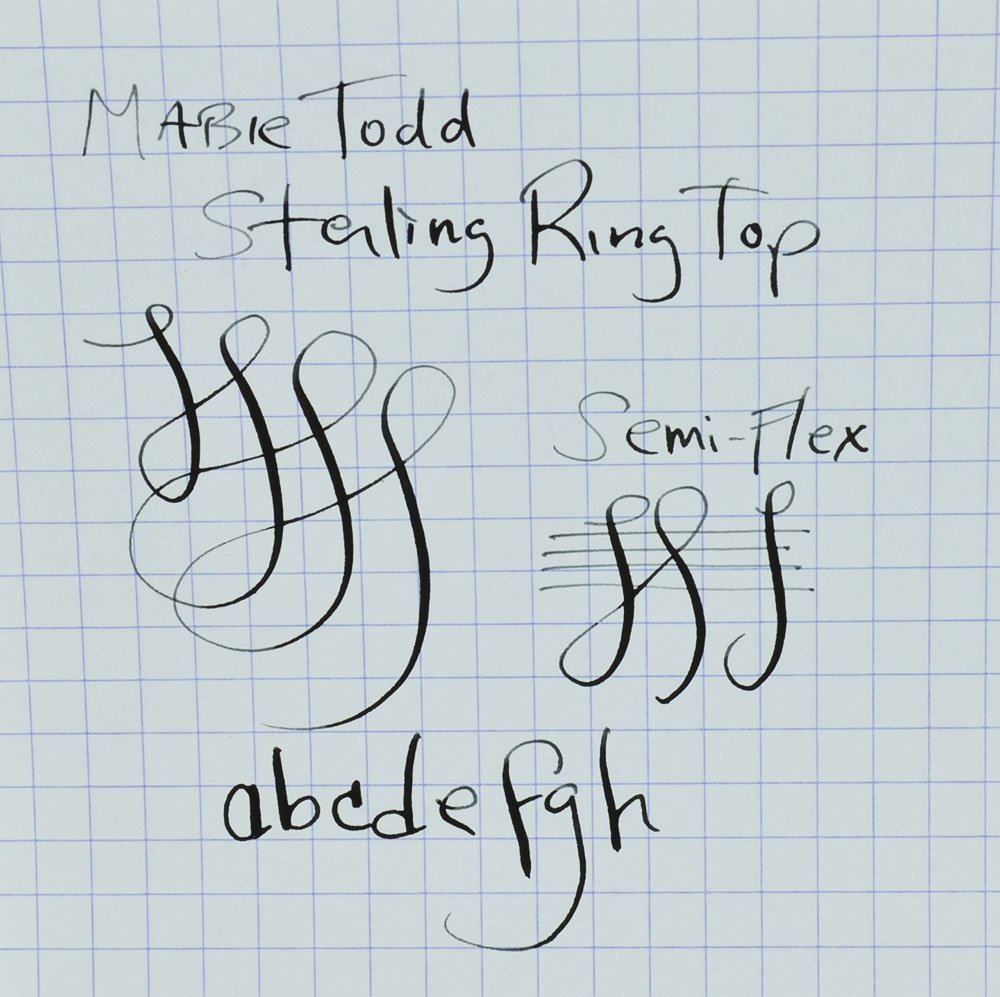 MABIE Todd
Sterling Ring Top
Semi-Flex
abcdefgh